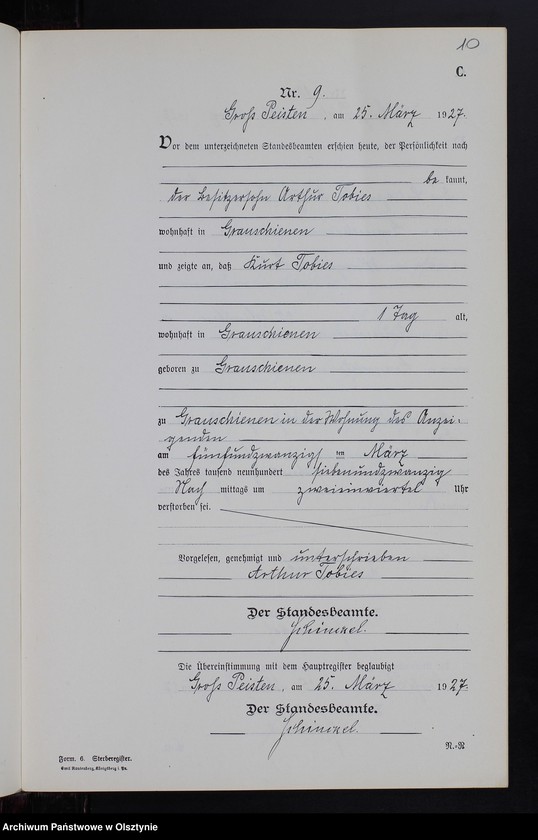 10
C.
Nr. 9.
Groß Peisten, am 25. März 1927.
Vor dem unterzeichneten Standesbeamten erschien heute, der Persönlichkeit nach
be kannt,
der Besitzersohn Arthur Tobies
wohnhaft in Grauschienen
und zeigte an, daß Kurt Tobies
1 Tag alt,
wohnhaft in Grauschienen
geboren zu Grauschienen
zu Grauschienen in der Wohnung des Anzei-
genden
am fünfundzwanzigsten März
des Jahres tausend neunhundert siebenundzwanzig
Nach mittags um zweieinviertel Uhr
verstorben sei.
Vorgelesen, genehmigt und unterschrieben
Arthur Tobies
Der Standesbeamte.
Schinkel.
Die Übereinstimmung mit dem Hauptregister beglaubigt
Groß Peisten, am 25. März 1927.
Der Standesbeamte.
Schinkel.
N.-R
Form. 6. Sterberegister.
Emil Rautenberg, Königsberg i. Pr.
Archiwum Państwowe w Olsztynie